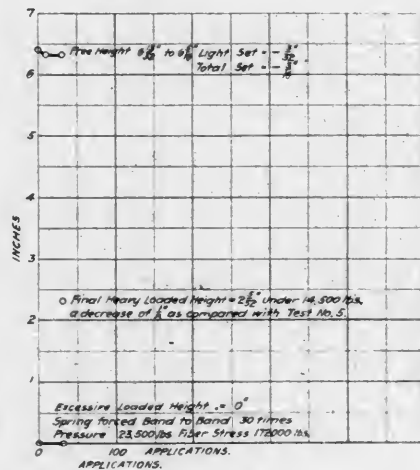 7
Free Height 6 13/32" to 6 5/16" Light Set = -
Total Set = -
6
5
4
INCHES
3
Final Heavy Loaded Height = 2 5/32" under 14,500 lbs.
a decrease of as compared with Test No. 5.
2
1
Excessive Loaded Height = 0"
Spring forced Band to Band 30 times
Pressure 23,500 lbs Fiber Stress 172000 lbs.
0
0 100 APPLICATIONS.
APPLICATIONS.